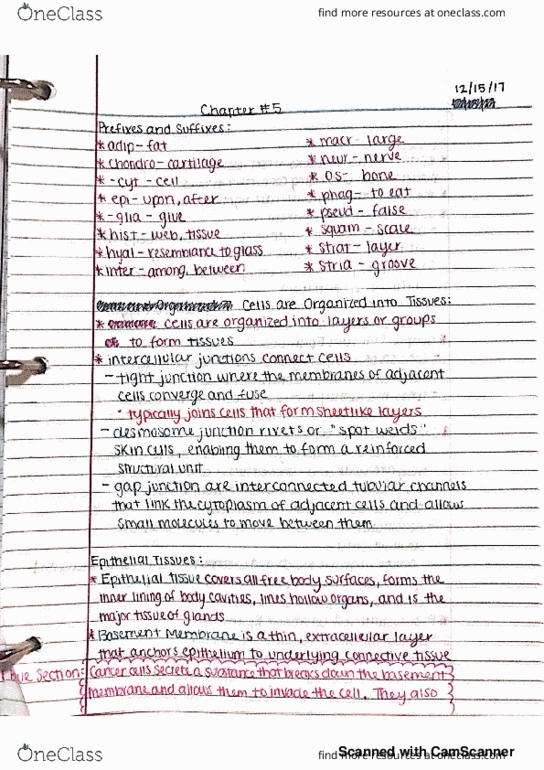 OneClass
find more resources at oneclass.com
12/15/17
Chapter #5
Prefixes and Suffixes:
* adip- fat
* chondro- cartilage
* -cyt - cell
* epi- upon, after
* -glia - glue
* hist- web, tissue
* hyal- resemblance to glass
* inter- among, between
* macr- large
* neur- nerve
* os- bone
* phag- to eat
* pseud- false
* squam- scale
* strat- layer
* stria- groove
Cells are Organized into Tissues:
* cells are organized into layers or groups
to form tissues
* intercellular junctions connect cells
- tight junction where the membranes of adjacent
cells converge and fuse
* typically joins cells that form sheetlike layers
- desmosome junction rivets or "spot welds"
skin cells, enabling them to form a reinforced
structural unit
- gap junction are interconnected tubular channels
that link the cytoplasm of adjacent cells and allows
small molecules to move between them
Epithelial Tissues:
* Epithelial tissue covers all free body surfaces, forms the
inner lining of body cavities, lines hollow organs, and is the
major tissue of glands
* Basement Membrane is a thin, extracellular layer
that anchors epithelium to underlying connective tissue
Blue Section: Cancer cells secrete a substance that breaks down the basement
membrane and allows them to invade the cell. They also
OneClass
find more resources at oneclass.com
Scanned with CamScanner